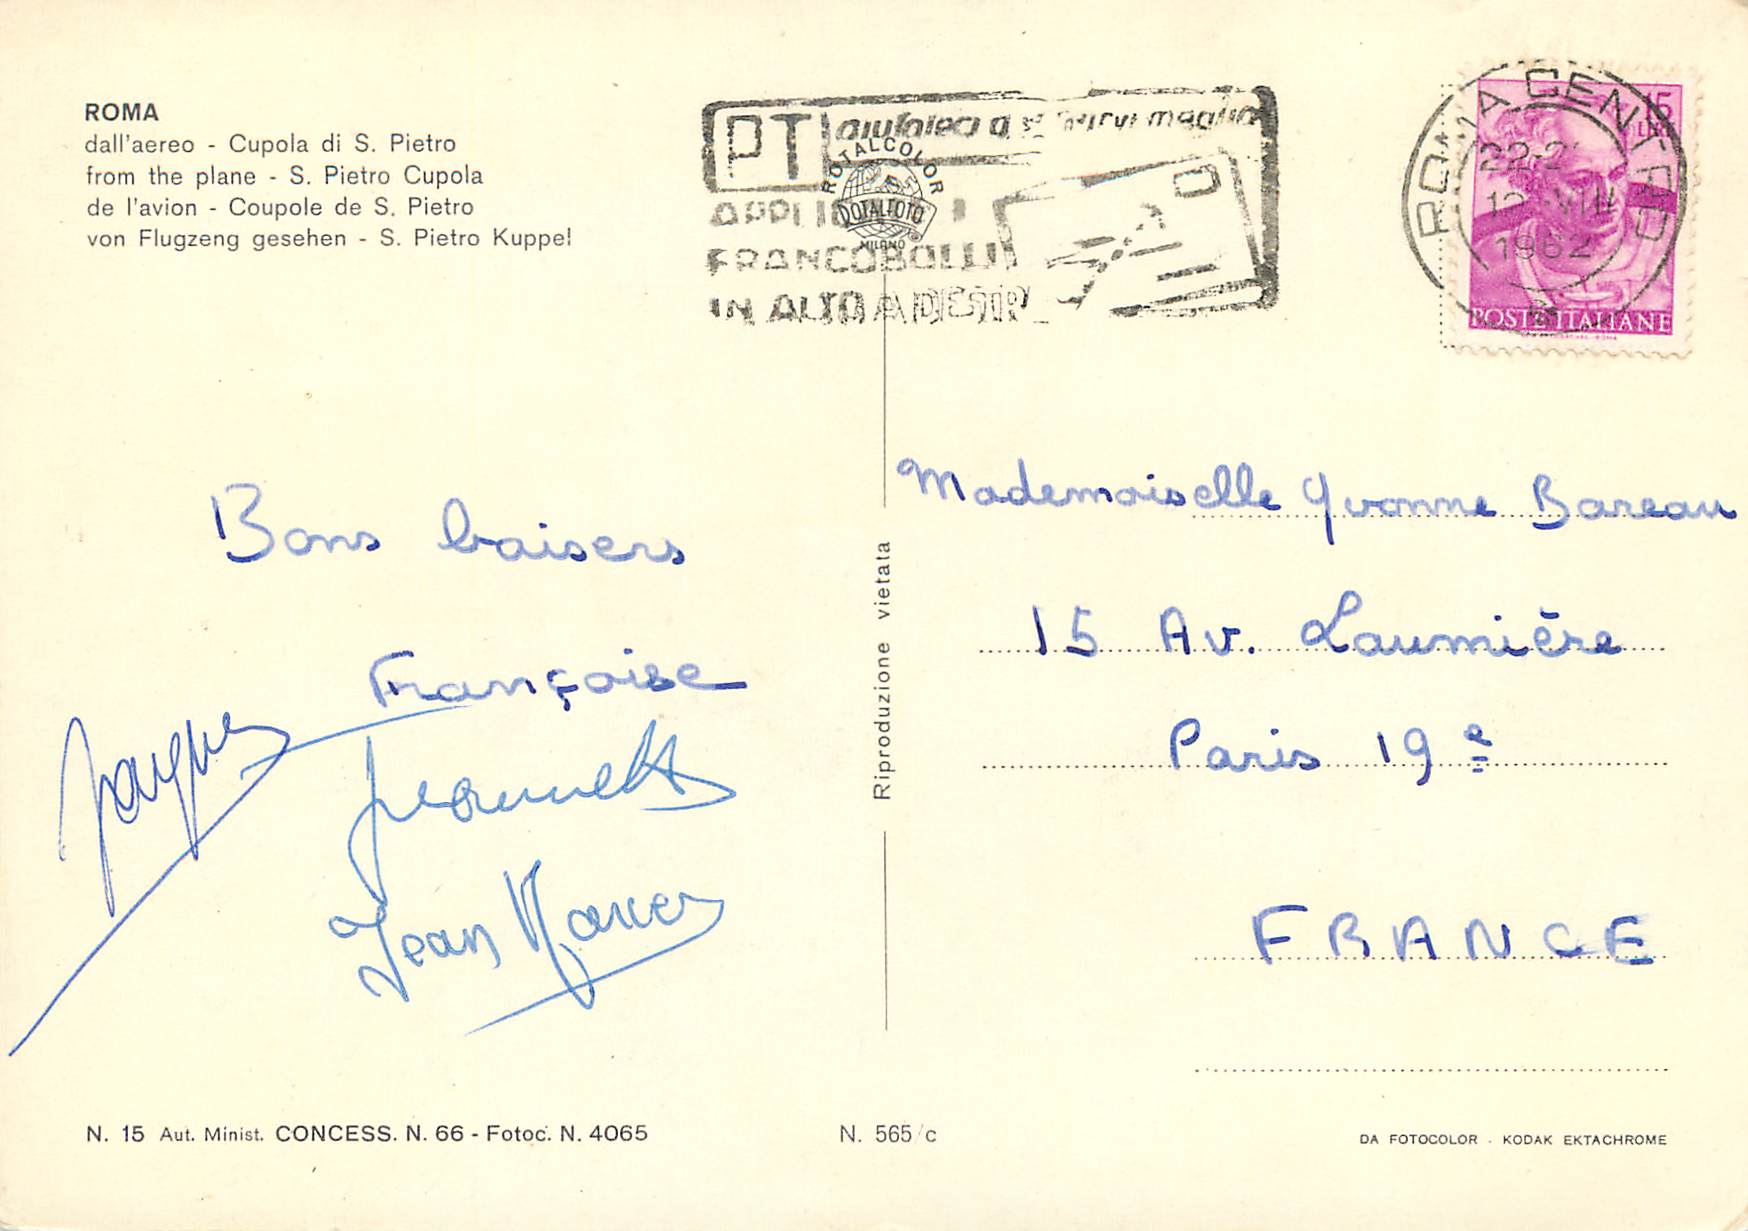 ROMA
dall'aereo - Cupola di S. Pietro
from the plane - S. Pietro Cupola
de l'avion - Coupole de S. Pietro
von Flugzeng gesehen - S. Pietro Kuppel
PT aiutateci a servirvi meglio
ROTALCOLOR
ROTALFOTO
MILANO
FRANCOBOLLI
IN ALTO A DESTRA
ROMA CENTRO
1962
15
LIRE
POSTE ITALIANE
Bons baisers
Françoise
Jacques
Jeannette
Jean Marc
Riproduzione vietata
Mademoiselle Yvonne Bareau
15 Av. Laumière
Paris 19e
FRANCE
N. 15 Aut. Minist. CONCESS. N. 66 - Fotoc. N. 4065
N. 565/c
DA FOTOCOLOR - KODAK EKTACHROME